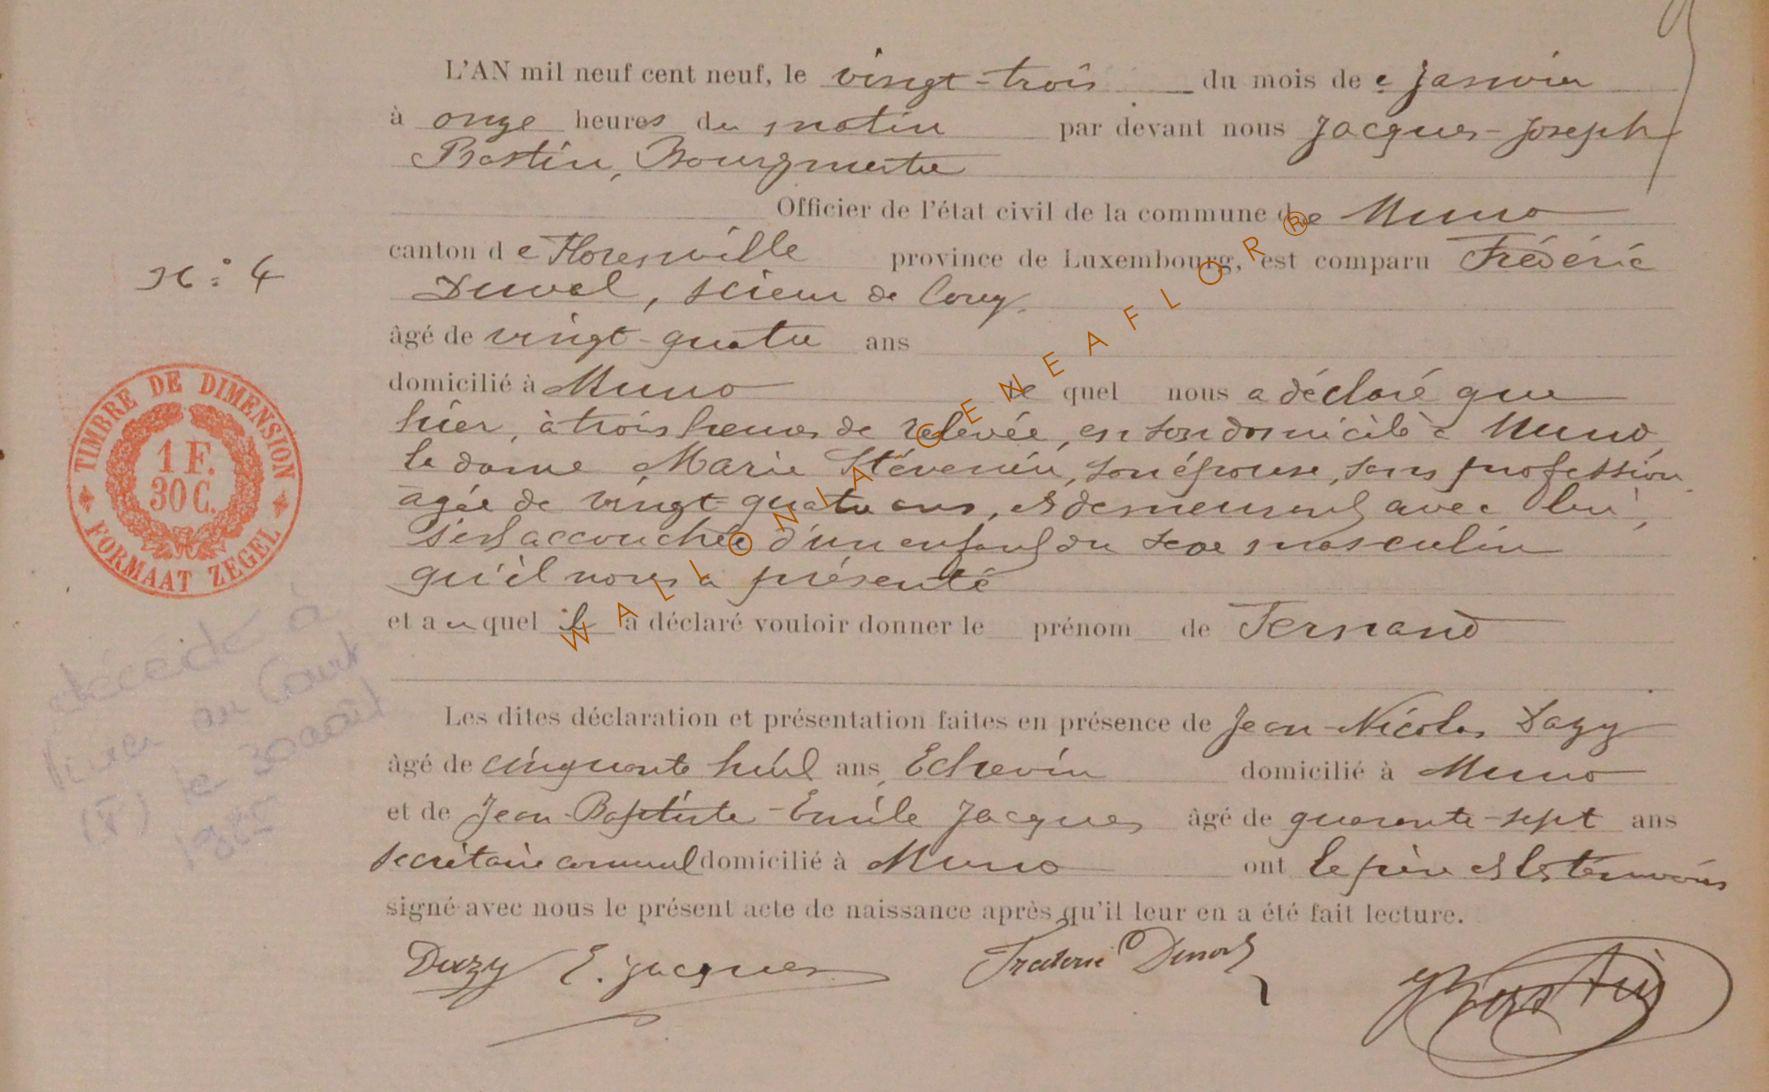 L'AN mil neuf cent neuf, le vingt-trois du mois de Janvier
à onze heures du matin par devant nous Jacques-Joseph
Bastin, Bourgmestre
Officier de l'état civil de la commune de Muno
canton de Florenville province de Luxembourg, est comparu Frédéric
N.° 4
Duval, scieur de long,
âgé de vingt-quatre ans
domicilié à Muno le quel nous a déclaré que
hier, à trois heures de relevée, en son domicile à Muno,
la dame Marie Stévenin, son épouse, sans profession
agée de vingt-quatre ans, et demeurant avec lui,
s'est accouchée d'un enfant du sexe masculin
qu'il nous a présenté
et au quel il a déclaré vouloir donner le prénom de Fernand
Les dites déclaration et présentation faites en présence de Jean-Nicolas Dazy
âgé de cinquante huit ans, Echevin domicilié à Muno
et de Jean-Baptiste-Emile Jacques âgé de quarante-sept ans
secrétaire communal domicilié à Muno ont le père et les témoins
signé avec nous le présent acte de naissance après qu'il leur en a été fait lecture.
Dazy E. Jacques Frederic Duval JBastin
TIMBRE DE DIMENSION
1 F.
30 C.
FORMAAT ZEGEL
décédé à
au Court
le 30 août
WALLONIA GENEAFLOR ®